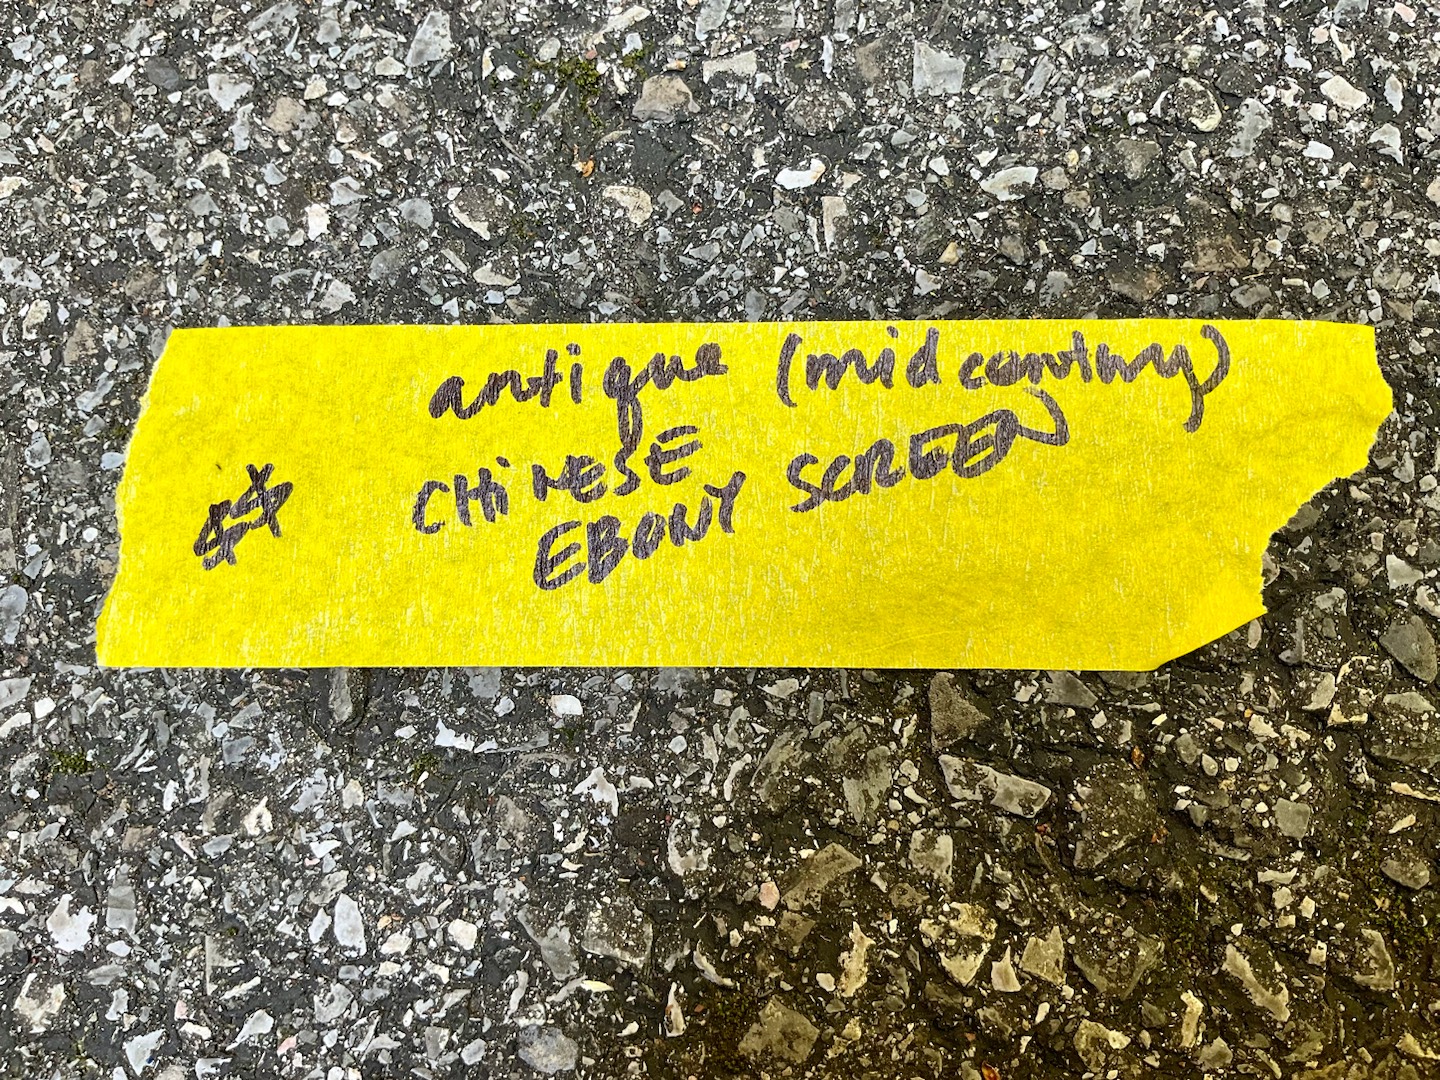 antique (midcentury)
CHiNESE
EBONY SCREEN